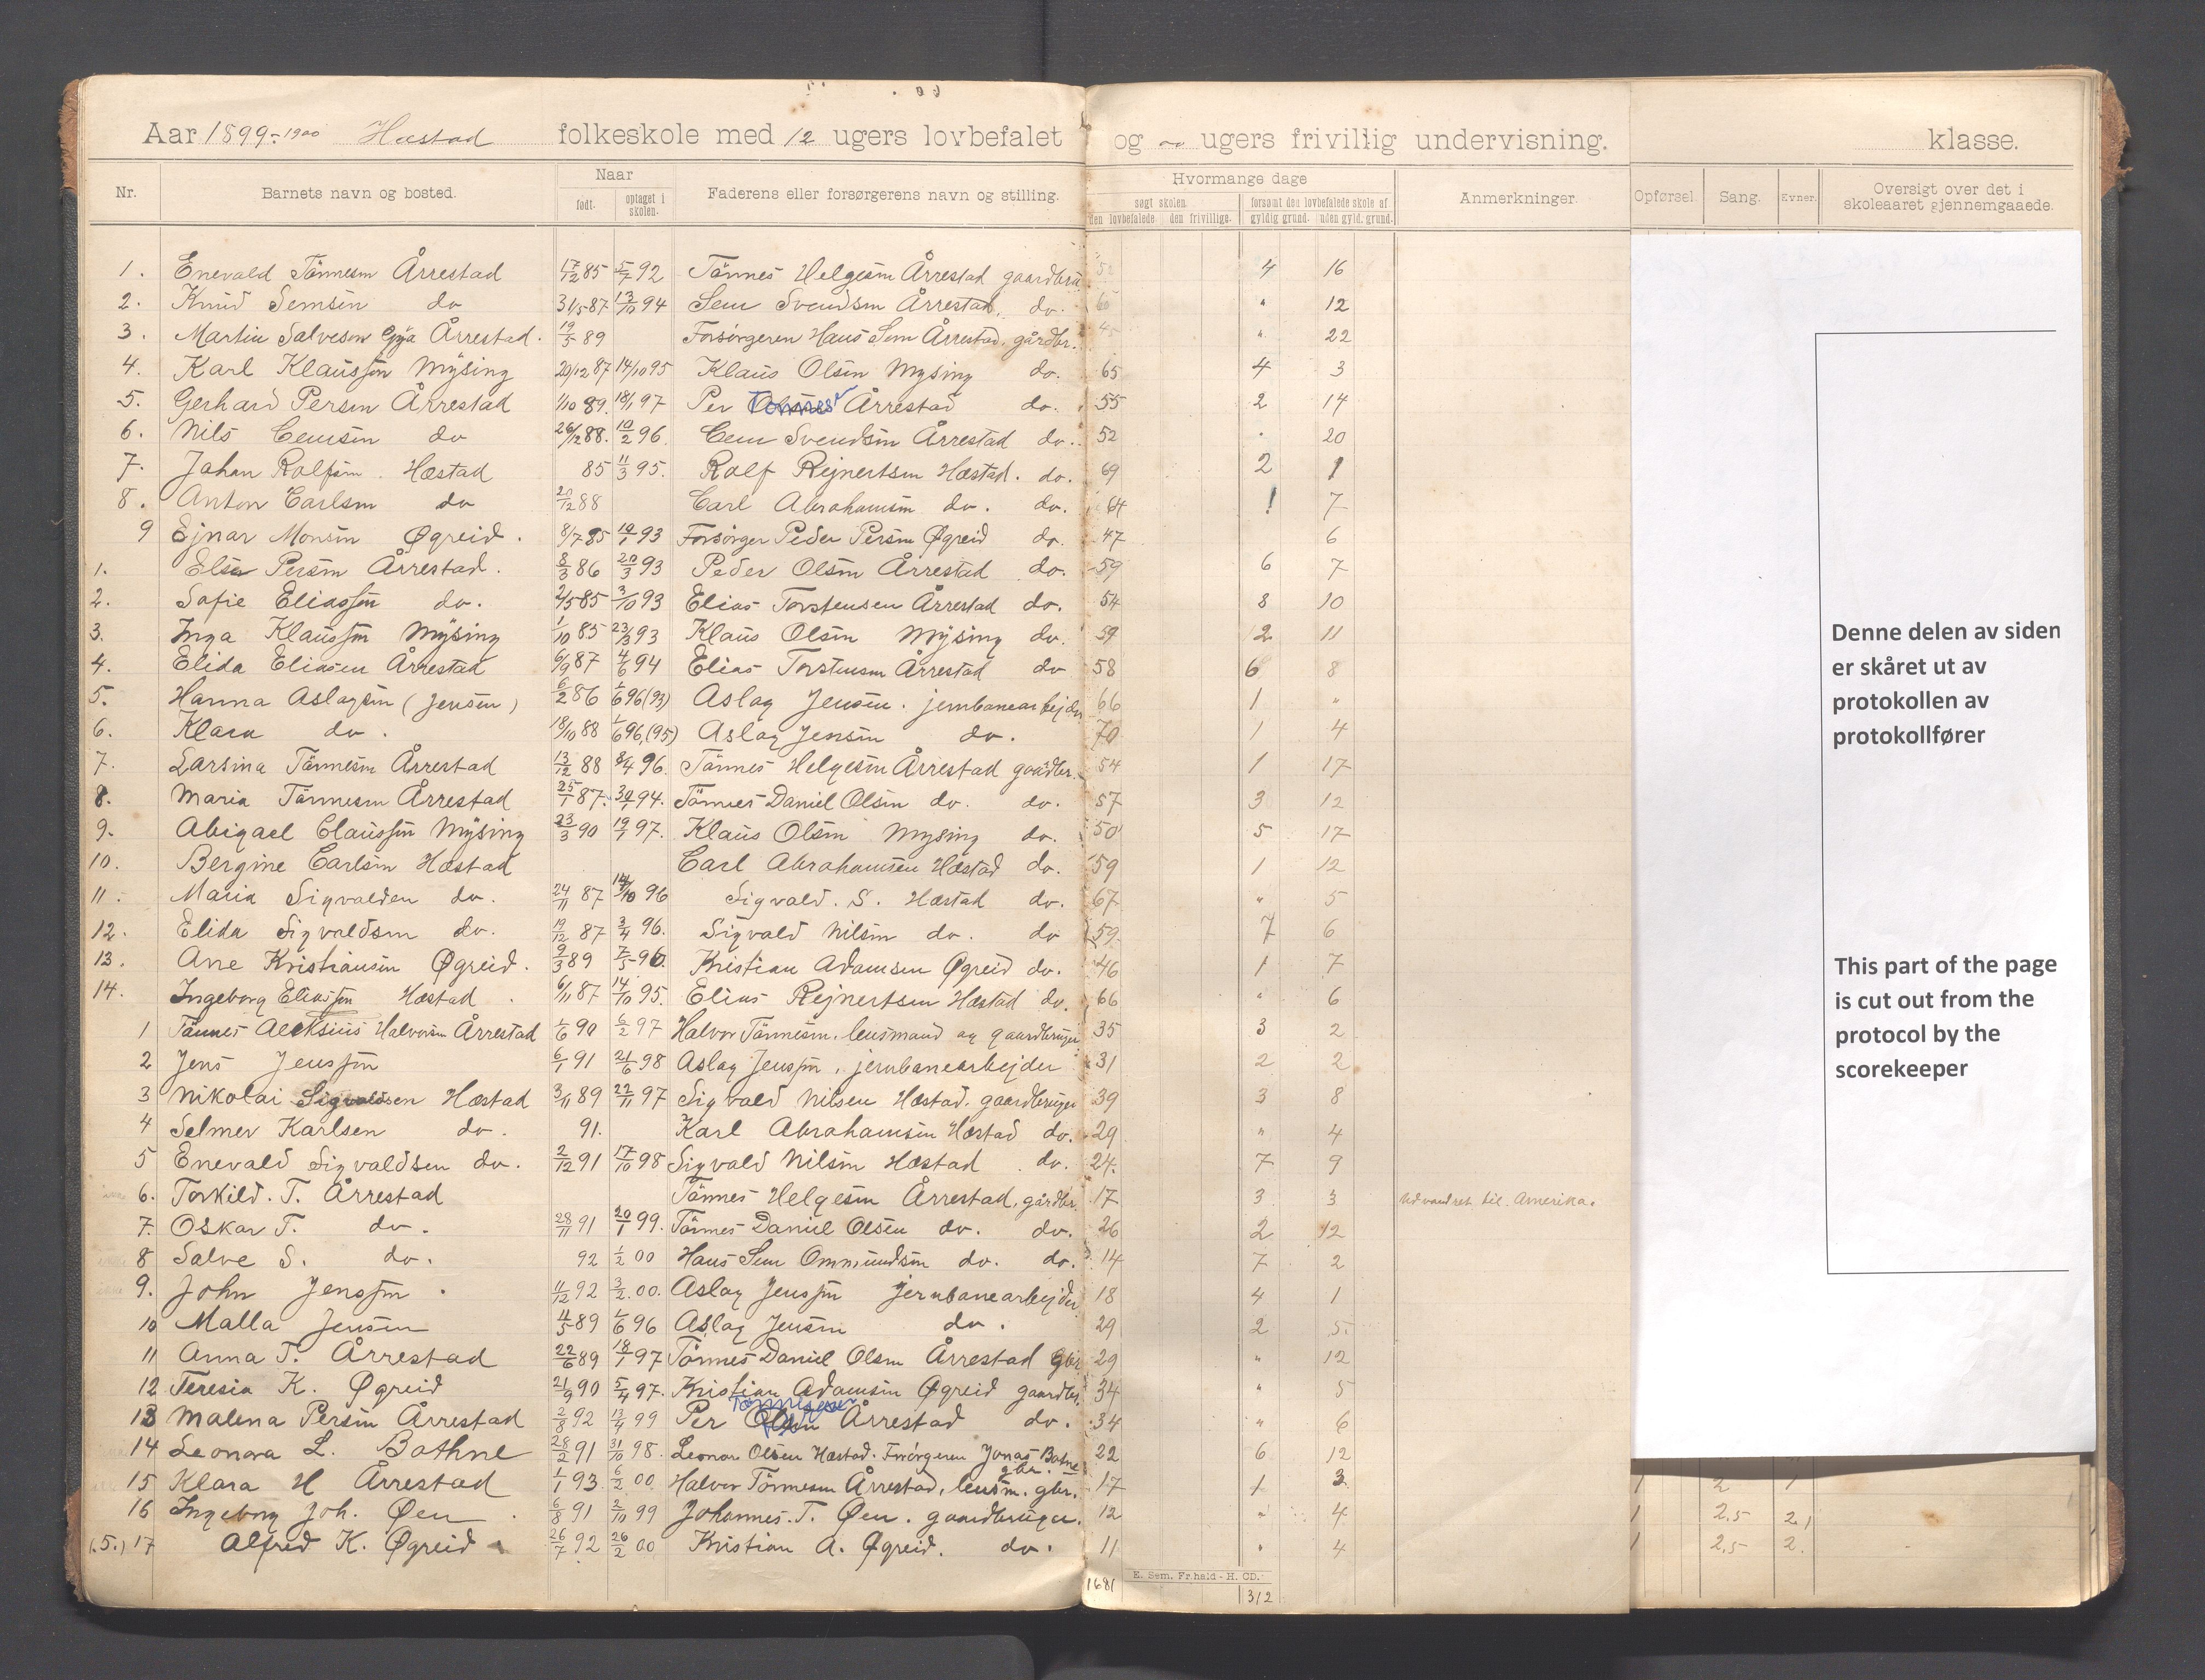 Aar 1899-1900 Hæstad folkeskole med 12 ugers lovbefalet og " ugers frivillig undervisning. klasse.
Nr. Barnets navn og bosted. Naar født. optaget i skolen. Faderens eller forsørgerens navn og stilling. Hvormange dage søgt skolen. den lovbefalede. den frivillige. forsømt den lovbefalede skole af gyldig grund. uden gyld. grund. Anmerkninger. Opførsel. Sang. Evner. Oversigt over det i skoleaaret gjennemgaaede.
1. Enevald Tönnesen Årrestad 17/12 85 5/7 92 Tönnes Helgesen Årrestad gaardbru 4 16
2. Knud Semsen do 31/5 87 13/10 94 Sem Svendsen Årrestad, do. " 12
3. Martin Salvesen Gya Årrestad. 19/5 89 Forsörgeren Hans Sem Årrestad. gårdbr. 45 " 22
4. Karl Klaussen Mysing 20/12 87 14/10 95 Klaus Olsen Mysing do. 65 4 3
5. Gerhard Persen Årrestad 1/10 89. 18/1 97 Per Tönnes Årrestad do. 55 2 14
6. Nils Cemsen do 26/12 88. 10/2 96. Cem Svendsen Årrestad do. 52 . 20
7. Johan Rolfsen. Hæstad 85 11/3 95. Rolf Rejnertsen Hæstad. do. 69 2 1
8. Anton Carlsen do 20/12 88 Carl Abrahamsen do. do. 64 1 7
9 Ejnar Monsen Øgreid. 8/7 85 19/1 93 Forsörger Peder Persen Øgreid do. 47 6
1. Else Persen Årrestad. 8/3 86 20/3 93 Peder Olsen Årrestad do. 59 6 7
2. Sofie Eliassen do. 2/5 85 3/10 93 Elias Torstensen Årrestad do. 54 8 10
3. Inga Klaussen Mysing 1/10 85 23/3 93 Klaus Olsen Mysing do. 59 2 11
4. Elida Eliasen Årrestad 6/9 87 4/6 94 Elias Torstensen Årrestad do 58 6 8
5. Hanna Aslagsen (Jensen) 6/2 86 1/6 96 (93) Aslag Jensen. jernbanearbejder 66 1 "
6. Klara do. 18/10 88 1/6 96, (95) Aslag Jensen do. 70 1 4
7. Larsina Tönnesen Årrestad 13/12 88 8/4 96. Tönnes Helgesen Årrestad gaardbr. 54 1 17
8. Maria Tönnesen Årrestad 25/1 87. 30/1 94. Tönnes Daniel Olsen do. do. 57 3 12
9. Abigael Claussen Mysing 23/3 90 19/1 97. Klaus Olsen Mysing do. 50 5 17
10. Bergine Carlsen Hæstad Carl Abrahamsen Hæstad do. 59 1 12
11. Maria Sigvaldsen do. 24/11 87 14/10 96 Sigvald. S. Hæstad do. 67 " 5
12. Elida Sigvaldsen do. 19/12 87 3/4 96. Sigvald Nilsen do. do 59 7 6
13. Ane Kristiansen Øgreid. 9/3 89 7/5 96. Kristian Adamsen Øgreid do. 46 1 7
14. Ingeborg Eliassen Hæstad. 6/11 87 14/10 95. Elias Rejnertsen Hæstad do. 66 " 6
1 Tönnes Aleksius Halvorsen Årrestad 1/6 90 6/2 97 Halvor Tönnesen. lensmand og gaardbruger 35 3 2
2 Jens Jenssen 6/1 91 21/6 98 Aslag Jenssen, jernbanearbejder 31 2 2
3 Nikolai Sigvaldsen Hæstad 3/11 89 22/11 97 Sigvald Nilsen Hæstad. gaardbruger 39 3 8
4 Selmer Karlsen do. 91. Karl Abrahamsen Hæstad do. 29 " 4
5 Enevald Sigvaldsen do. 2/12 91 17/10 98 Sigvald Nilsen Hæstad. do. 24. 7 9
6. Torkild. T. Årrestad Tönnes Helgesen Årrestad, gårdbr. 17 3 3 Udvandret til Amerika.
7. Oskar T. do. 28/11 91 20/1 99. Tönnes Daniel Olsen do. do. 26 2 12
8 Salve S. do. 92 1/2 00 Hans Sem Ommundsen do. do. 14 7 2
9. John Jenssen. 11/12 92 3/2 00. Aslag Jenssen Jernbanearbejder 18 4 1
10 Malla Jensen 4/5 89 1/6 96 Aslag Jensen do. 29 2 5.
11 Anna T. Årrestad 22/6 89 18/1 97 Tönnes Daniel Olsen Årrestad gbr 29 " 12
12 Teresia K. Øgreid 21/9 90 5/4 97. Kristian Adamsen Øgreid gaardbr. 34 " 5
13 Malena Persen Årrestad 2/8 92 13/4 99 Per Olsen Tönnesen Årrestad do. 34 " 6
14 Leonora L. Bathne 28/2 91 31/10 98. Leonar Olsen Hæstad. Forsörgeren Jonas Batne gbr. 22 6 12
15 Klara H Årrestad 1/1 93 6/2 00. Halvor Tönnesen Årrestad, lensm. gbr. 17 1 3 1 2 1
16 Ingeborg Joh. Øen. 6/8 91 2/10 99 Johannes. T. Øen. gaardbruger. 12 " 4 1 2.5 2.1
(.5.) 17 Alfred K. Øgreid. 26/7 92 26/2 00 Kristian A. Øgreid. do. 11 " 4 1 2.5 2.
1681 E. Sem. Fr.hald - H. CD. 312
Denne delen av siden
er skåret ut av
protokollen av
protokollfører
This part of the page
is cut out from the
protocol by the
scorekeeper